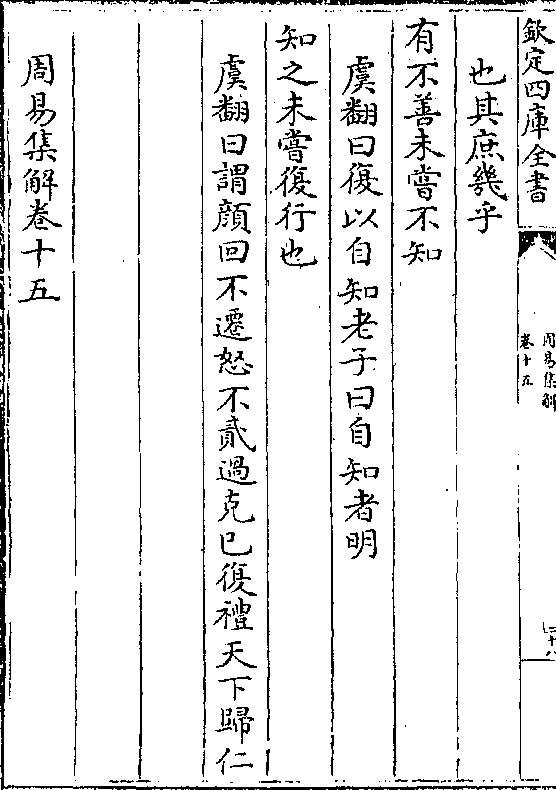 欽定四庫全書
周易集解
卷十五
也其庶幾乎
有不善未嘗不知
虞翻曰復以自知老子曰自知者明
知之未嘗復行也
虞翻曰謂顔回不遷怒不貳過克己復禮天下歸仁
周易集解卷十五